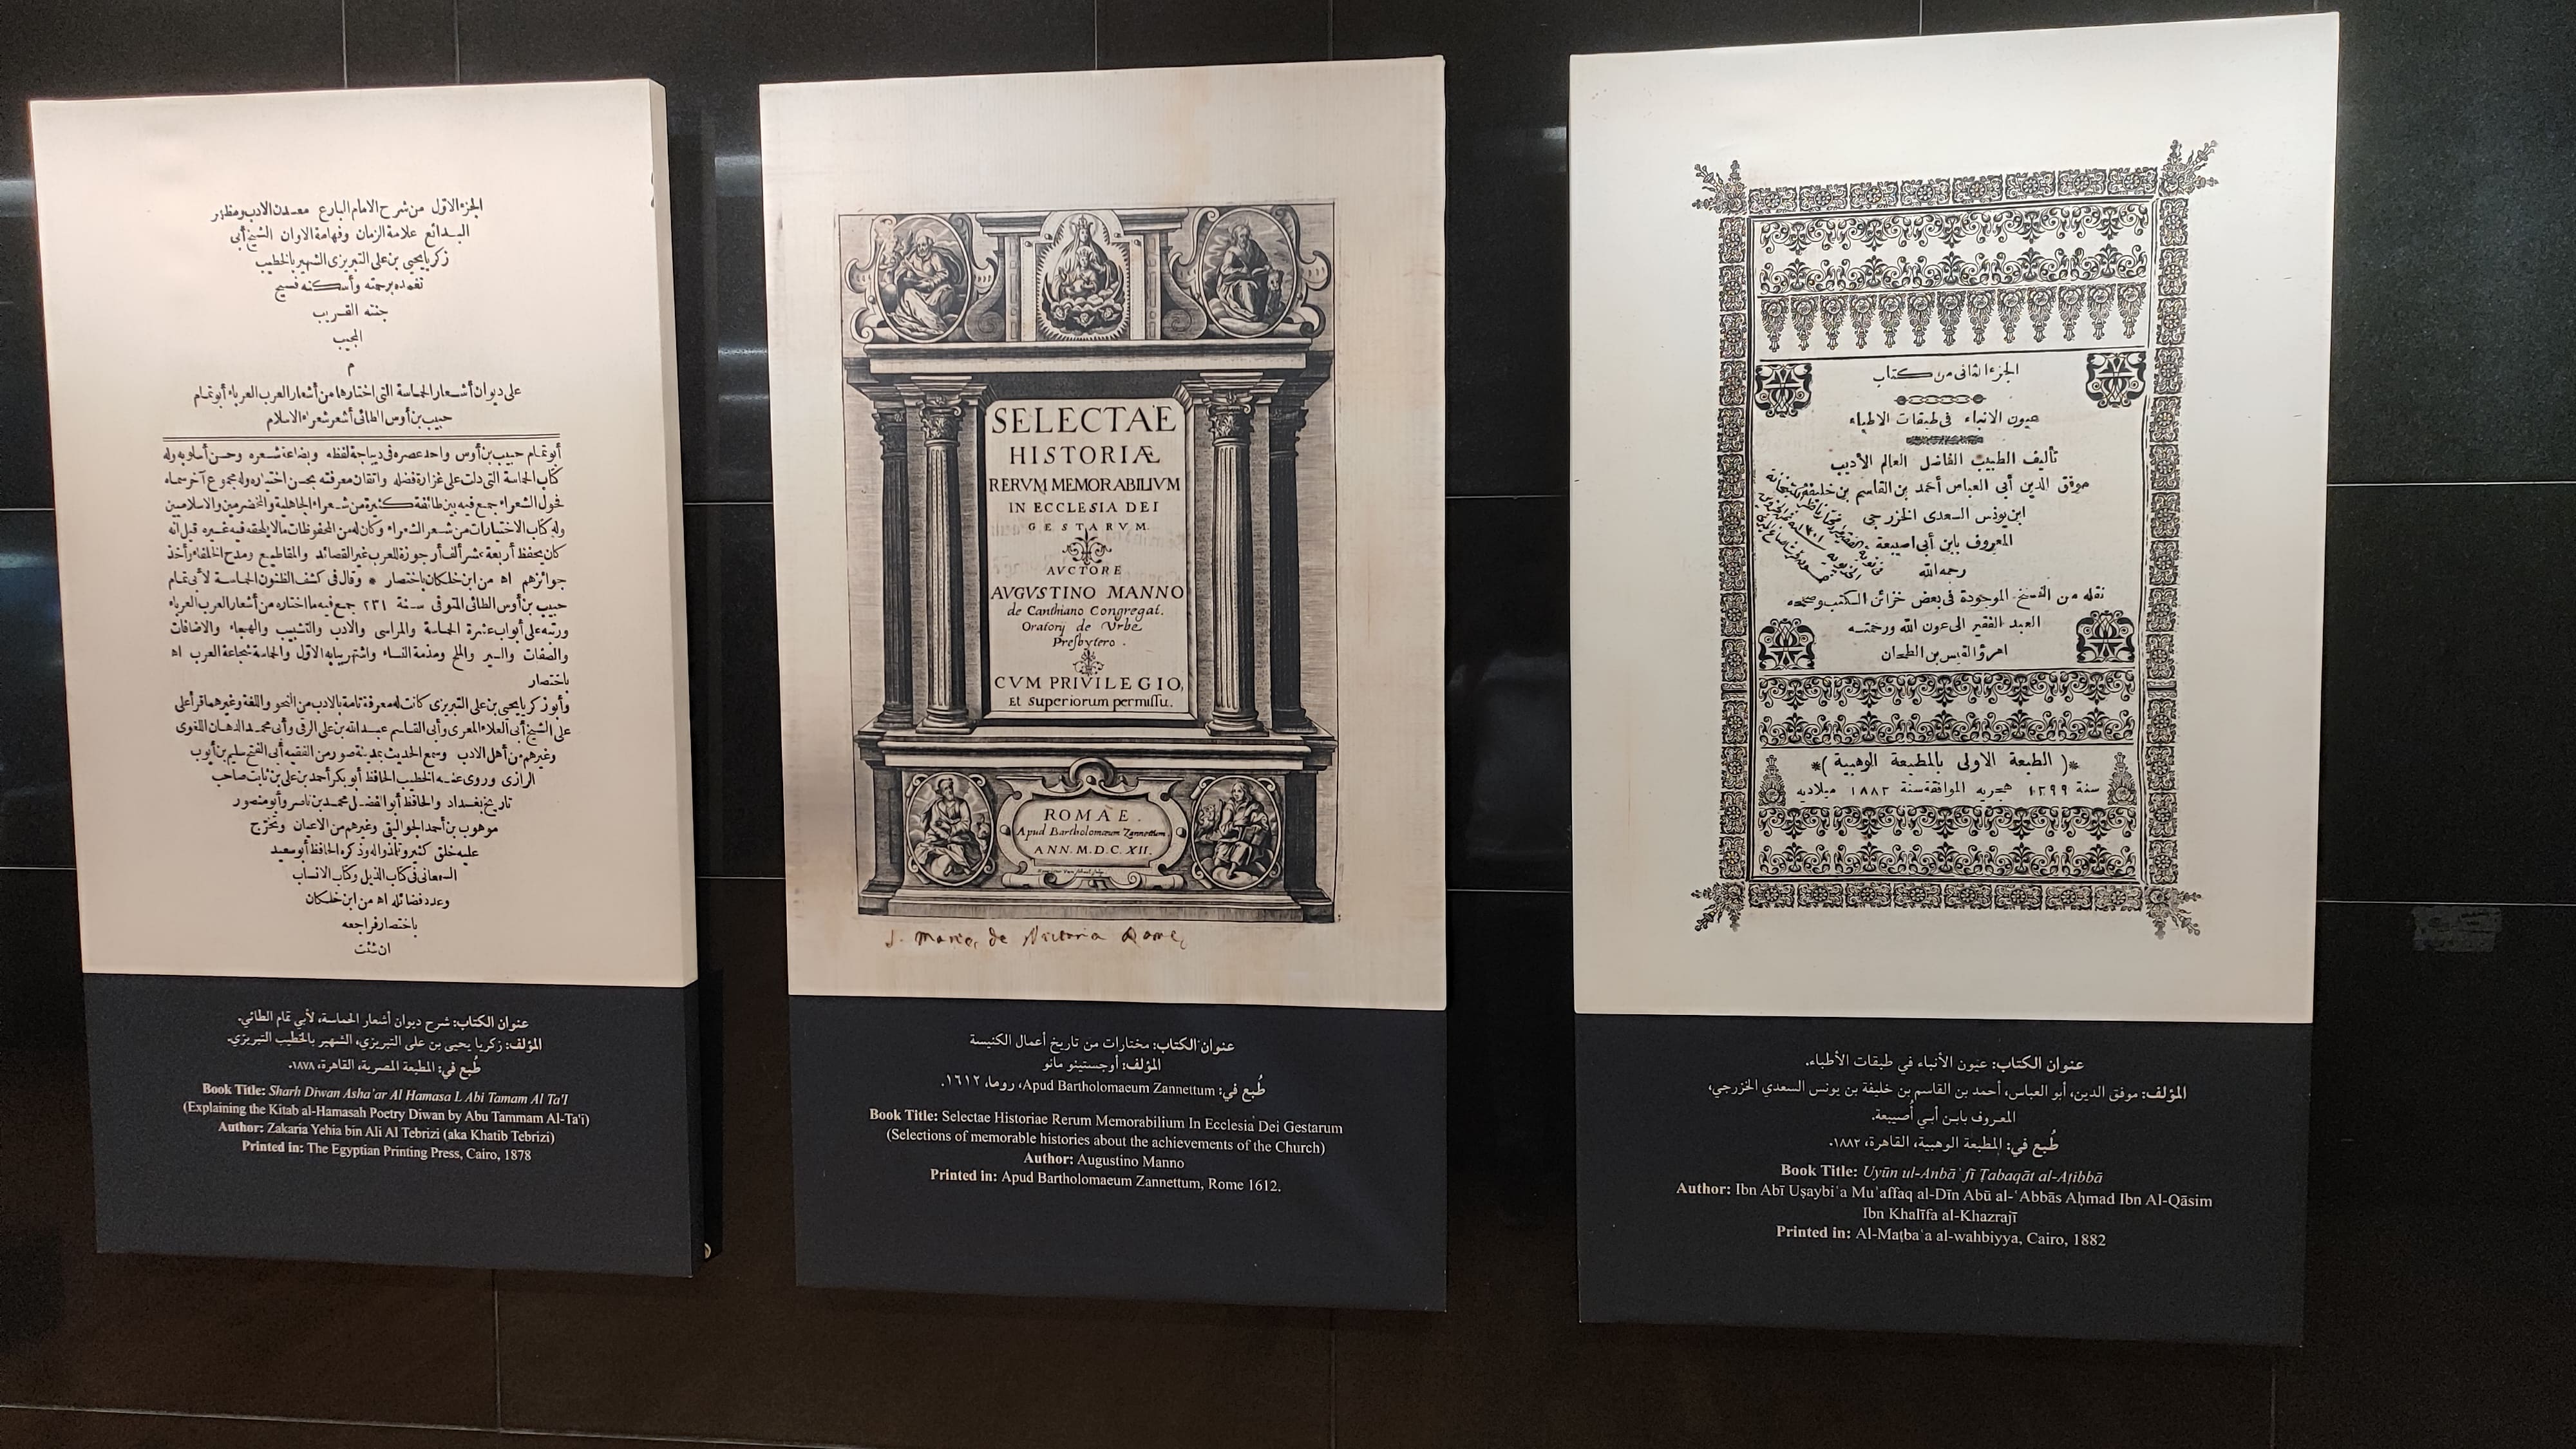 الجزء الاول من شرح الامام البارع معدن الادب ومظهر
البدائع علامة الزمان وفهامة الاوان الشيخ أبى
زكريا يحيى بن على التبريزى الشهير بالخطيب
تغمده برحمته وأسكنه فسيح
جنته القريب
المجيب
م
على ديوان أشعار الحماسة التى اختارها من أشعار العرب العرباء أبو تمام
حبيب بن أوس الطائى أشعر شعراء الاسلام
أبو تمام حبيب بن أوس واحد عصره فى ديباجة لفظه وبضاعة شعره وحسن أسلوبه وله
كتاب الحماسة التى دلت على غزارة فضله واتقان معرفته بحسن اختياره وله مجموع آخر سماه
فحول الشعراء جمع فيه بين طائفة كثيرة من شعراء الجاهلية والمخضرمين والاسلاميين
وله كتاب الاختيارات من شعر الشعراء وكان له من المحفوظات مالا يلحقه فيه غيره قيل انه
كان يحفظ أربعة عشر ألف أرجوزة للعرب غير القصائد والمقاطيع ومدح الخلفاء وأخذ
جوائزهم اه من ابن خلكان باختصار * وقال فى كشف الظنون الحماسة لأبى تمام
حبيب بن أوس الطائى المتوفى سنة ٢٣١ جمع فيه ما اختاره من أشعار العرب العرباء
ورتبه على أبواب عشرة الحماسة والمراسى والادب والتشبيب والهجاء والاضافات
والصفات والسير والملح ومذمة النساء واشتهر ببابه الاول والحماسة شجاعة العرب اه
باختصار
وأبو زكريا يحيى بن على التبريزى كانت له معرفة تامة بالادب من النحو واللغة وغيرهما قرأ على
على الشيخ أبى العلاء المعرى وأبى القاسم عبد الله بن على الرقى وأبى محمد الدهان اللغوى
وغيرهم من أهل الادب وسمع الحديث بمدينة صور من الفقيه أبى الفتح سليم بن أيوب
الرازى وروى عنه الخطيب الحافظ أبو بكر أحمد بن على بن ثابت صاحب
تاريخ بغداد والحافظ أبو الفضل محمد بن ناصر وأبو منصور
موهوب بن أحمد الجواليقى وغيرهم من الاعيان وتخرج
عليه خلق كثير وتلمذوا له وذكره الحافظ أبو سعيد
السمعانى فى كتاب الذيل وكتاب الانساب
وعدد فضائله اه من ابن خلكان
باختصار فراجعه
ان شئت
عنوان الكتاب: شرح ديوان أشعار الحماسة، لأبي تمام الطائي.
المؤلف: زكريا يحيى بن على التبريزي، الشهير بالخطيب التبريزي.
طُبع في: المطبعة المصرية، القاهرة، ١٨٧٨.
Book Title: Sharh Diwan Asha'ar Al Hamasa L Abi Tamam Al Ta'I
(Explaining the Kitab al-Hamasah Poetry Diwan by Abu Tammam Al-Ta'i)
Author: Zakaria Yehia bin Ali Al Tebrizi (aka Khatib Tebrizi)
Printed in: The Egyptian Printing Press, Cairo, 1878
SELECTAE
HISTORIÆ
RERVM MEMORABILIVM
IN ECCLESIA DEI
GESTARVM.
AVCTORE
AVGVSTINO MANNO
de Canthiano Congregat.
Oratorij de Vrbe
Presbytero.
CVM PRIVILEGIO,
Et Superiorum permissu.
ROMAE.
Apud Bartholomæum Zannettum.
ANN. M.D.C.XII.
S. Maria de Victoria Romę
عنوان الكتاب: مختارات من تاريخ أعمال الكنيسة
المؤلف: أوجستينو مانو
طُبع في: Apud Bartholomaeum Zannettum، روما، ١٦١٢.
Book Title: Selectae Historiae Rerum Memorabilium In Ecclesia Dei Gestarum
(Selections of memorable histories about the achievements of the Church)
Author: Augustino Manno
Printed in: Apud Bartholomaeum Zannettum, Rome 1612.
الجزء الثانى من كتاب
عيون الانباء فى طبقات الاطباء
تأليف الطبيب الفاضل العالم الأديب
موفق الدين أبى العباس أحمد بن القاسم بن خليفة
ابن يونس السعدى الخزرجى
المعروف بابن أبى اصيبعة
رحمه الله
نقله من النسخ الموجودة فى بعض خزائن الكتب وصححه
العبد الفقير الى عون الله ورحمته
امرؤ القيس بن الطحان
*( الطبعة الاولى بالمطبعة الوهبية )*
سنة ١٢٩٩ هجريه الموافقة سنة ١٨٨٢ ميلاديه
عنوان الكتاب: عيون الأنباء في طبقات الأطباء.
المؤلف: موفق الدين، أبو العباس، أحمد بن القاسم بن خليفة بن يونس السعدي الخزرجي،
المعروف بابن أبي أُصيبعة.
طُبع في: المطبعة الوهبية، القاهرة، ١٨٨٢.
Book Title: Uyūn ul-Anbāʾ fī Ṭabaqāt al-Aṭibbā
Author: Ibn Abī Uṣaybiʿa Muʾaffaq al-Dīn Abū al-ʿAbbās Aḥmad Ibn Al-Qāsim
Ibn Khalīfa al-Khazrajī
Printed in: Al-Maṭbaʿa al-wahbiyya, Cairo, 1882